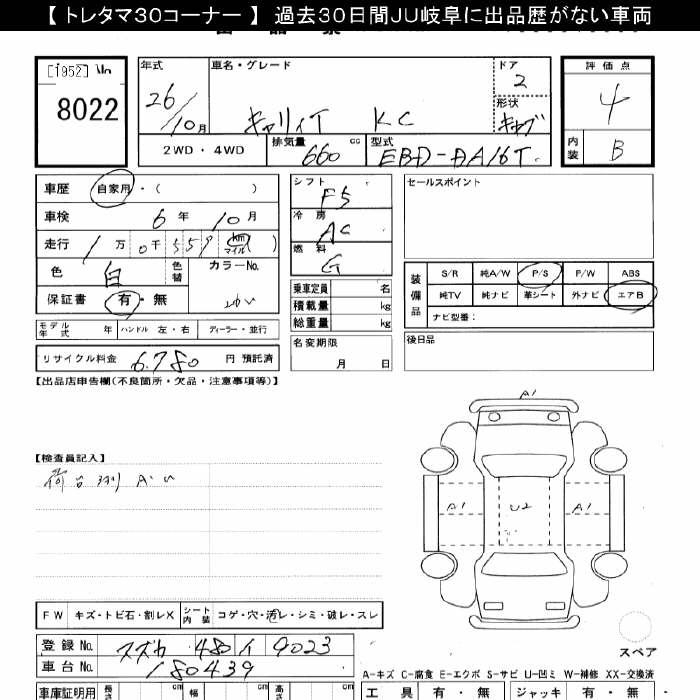 【 トレタマ30コーナー 】 過去30日間JU岐阜に出品歴がない車両
[1952]
8022
年式
26/10月
車名・グレード
キャリイT KC
ドア
2
形状
キャブ
評価点
4
内装
B
2WD・4WD
排気量 660 cc
型式 EBD-DA16T
車歴 自家用・( )
車検 6年 10月
走行 1万 0千 5 5 9 km マイル
色 白 色替
カラーNo. 26V
保証書 有・無
モデル年式 年 ハンドル 左・右 ディーラー・並行
リサイクル料金 6,780 円 預託済
シフト F5
冷房 AC
燃料 G
乗車定員 名
積載量 kg
総重量 kg
名変期限
月 日
セールスポイント
装備品
S/R 純A/W P/S P/W ABS
純TV 純ナビ 革シート 外ナビ エアB
ナビ型番：
後日品
【出品店申告欄(不良箇所・欠品・注意事項等)】
【検査員記入】
荷台
A1
A1
U2
A1
スペア
FW キズ・トビ石・割レX シート内装 コゲ・穴・汚レ・シミ・破レ・スレ
登録No. スズカ 480 イ 9023
車台No. 180439
A-キズ C-腐食 E-エクボ S-サビ U-凹ミ W-補修 XX-交換済
車庫証明用 長さ cm 幅 cm 高さ cm
工具 有・無 ジャッキ 有・無